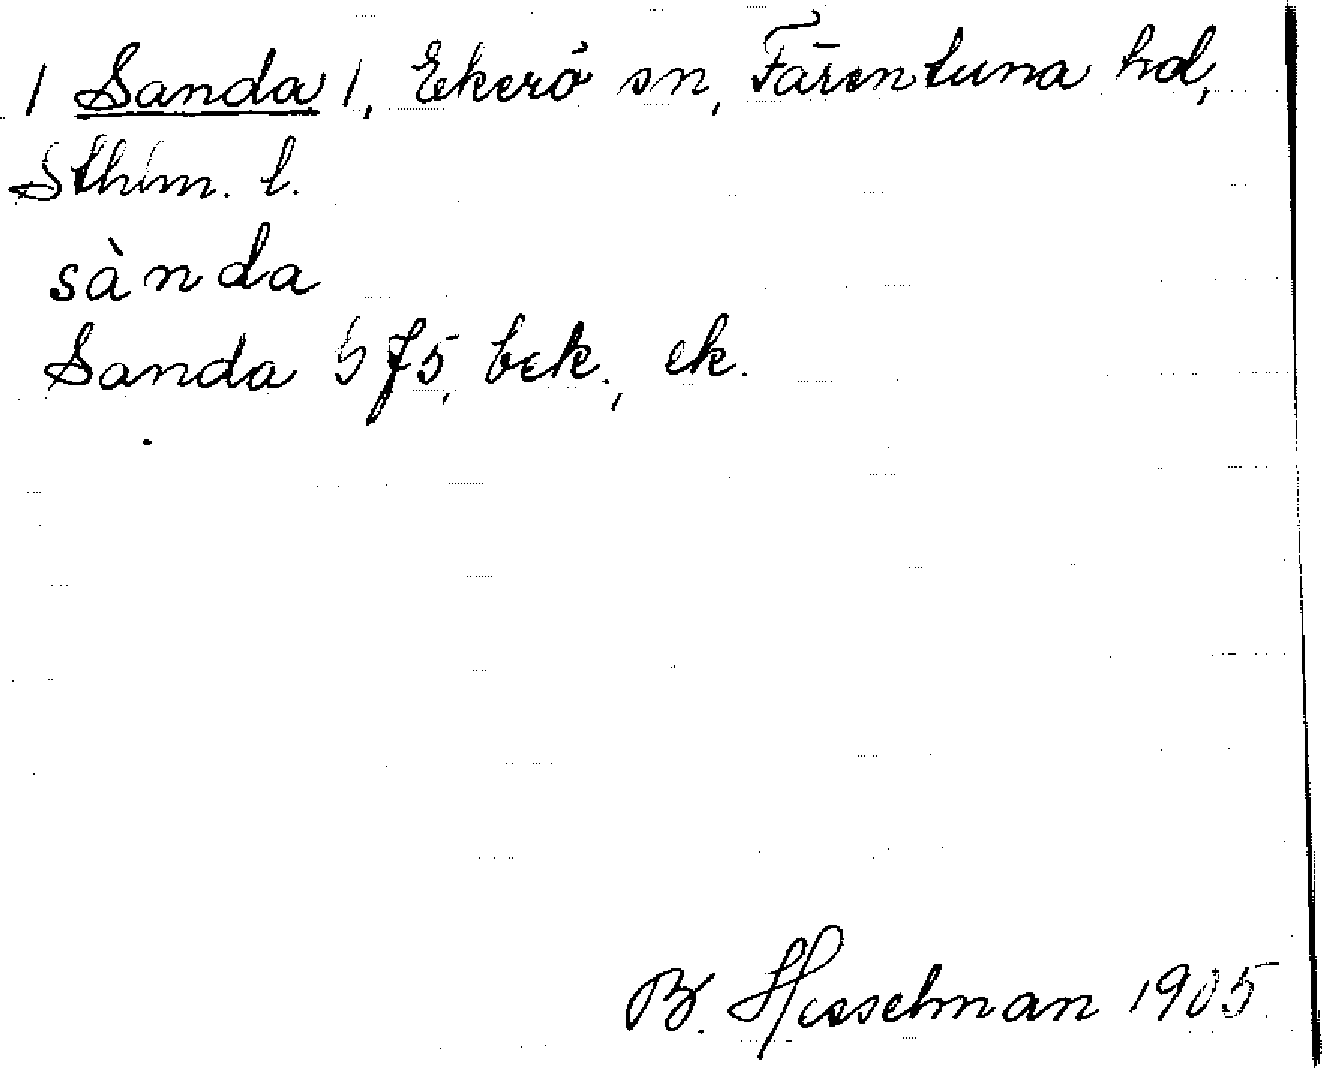 / Sanda /, Ekerö sn, Färentuna hd,
Sthlm. l.
sànda
Sanda J5, bek., ek.
B. Hesselman 1905